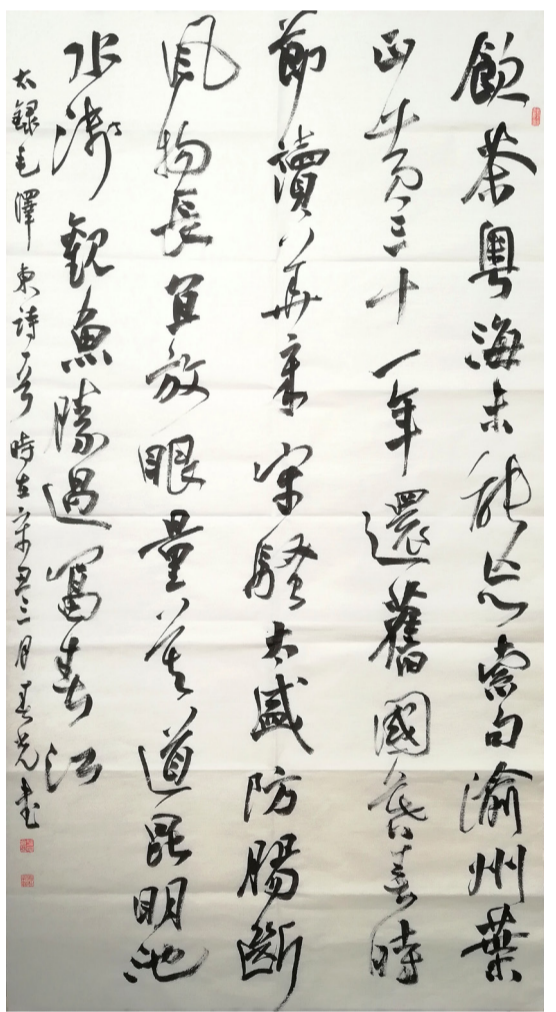 飲茶粵海未能忘索句渝州葉
正黄三十一年還舊國暮春時
節讀華章牢騷太盛防腸斷
風物長宜放眼量莫道昆明池
水淺觀魚勝過富春江
右録毛澤東詩一首時在辛丑三月春光書